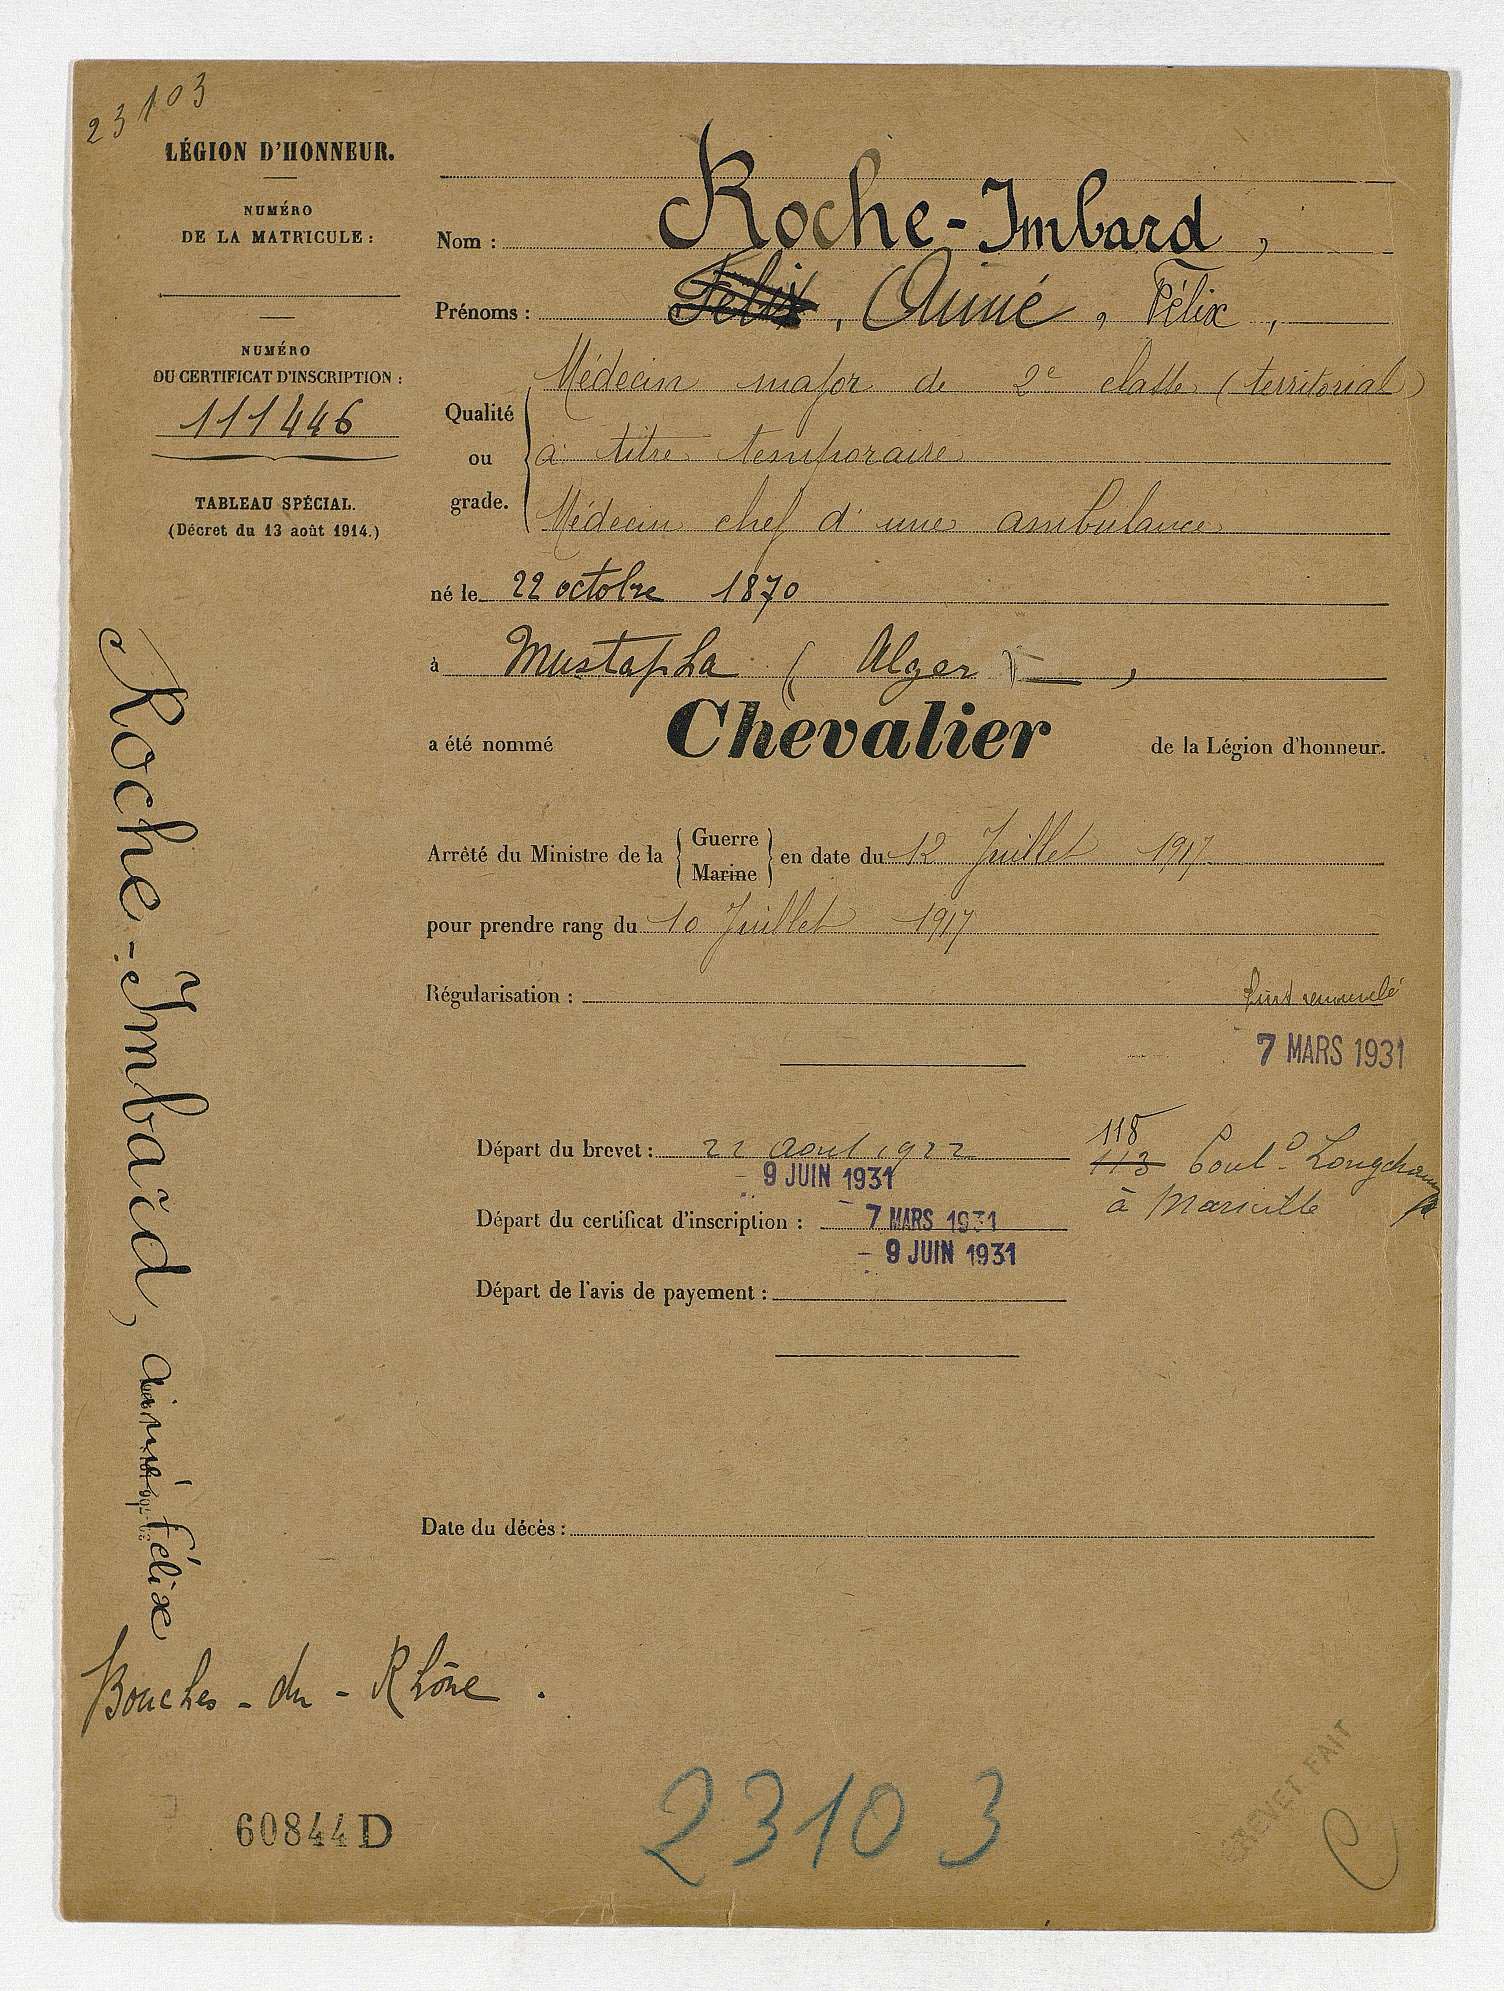 23103
LÉGION D'HONNEUR.
NUMÉRO
DE LA MATRICULE :
NUMÉRO
DU CERTIFICAT D'INSCRIPTION :
111446
TABLEAU SPÉCIAL.
(Décret du 13 août 1914.)
Nom : Roche-Imbard,
Prénoms : Félix, Aimé, Félix,
Qualité ou grade.
Médecin major de 2e classe (territorial)
à titre temporaire
Médecin chef d'une ambulance
né le 22 octobre 1870
à Mustapha (Alger),
a été nommé Chevalier de la Légion d'honneur.
Arrêté du Ministre de la Guerre Marine en date du 12 Juillet 1917
pour prendre rang du 10 Juillet 1917
Régularisation :
7 MARS 1931
Départ du brevet : 22 aout 1922
9 JUIN 1931
118
113 Boul.d Longchamp
à Marseille
Départ du certificat d'inscription : 7 MARS 1931
9 JUIN 1931
Départ de l'avis de payement :
Date du décès :
Roche-Imbard, Aimé Félix
Bouches-du-Rhône.
60844D
23103
BREVET FAIT
C